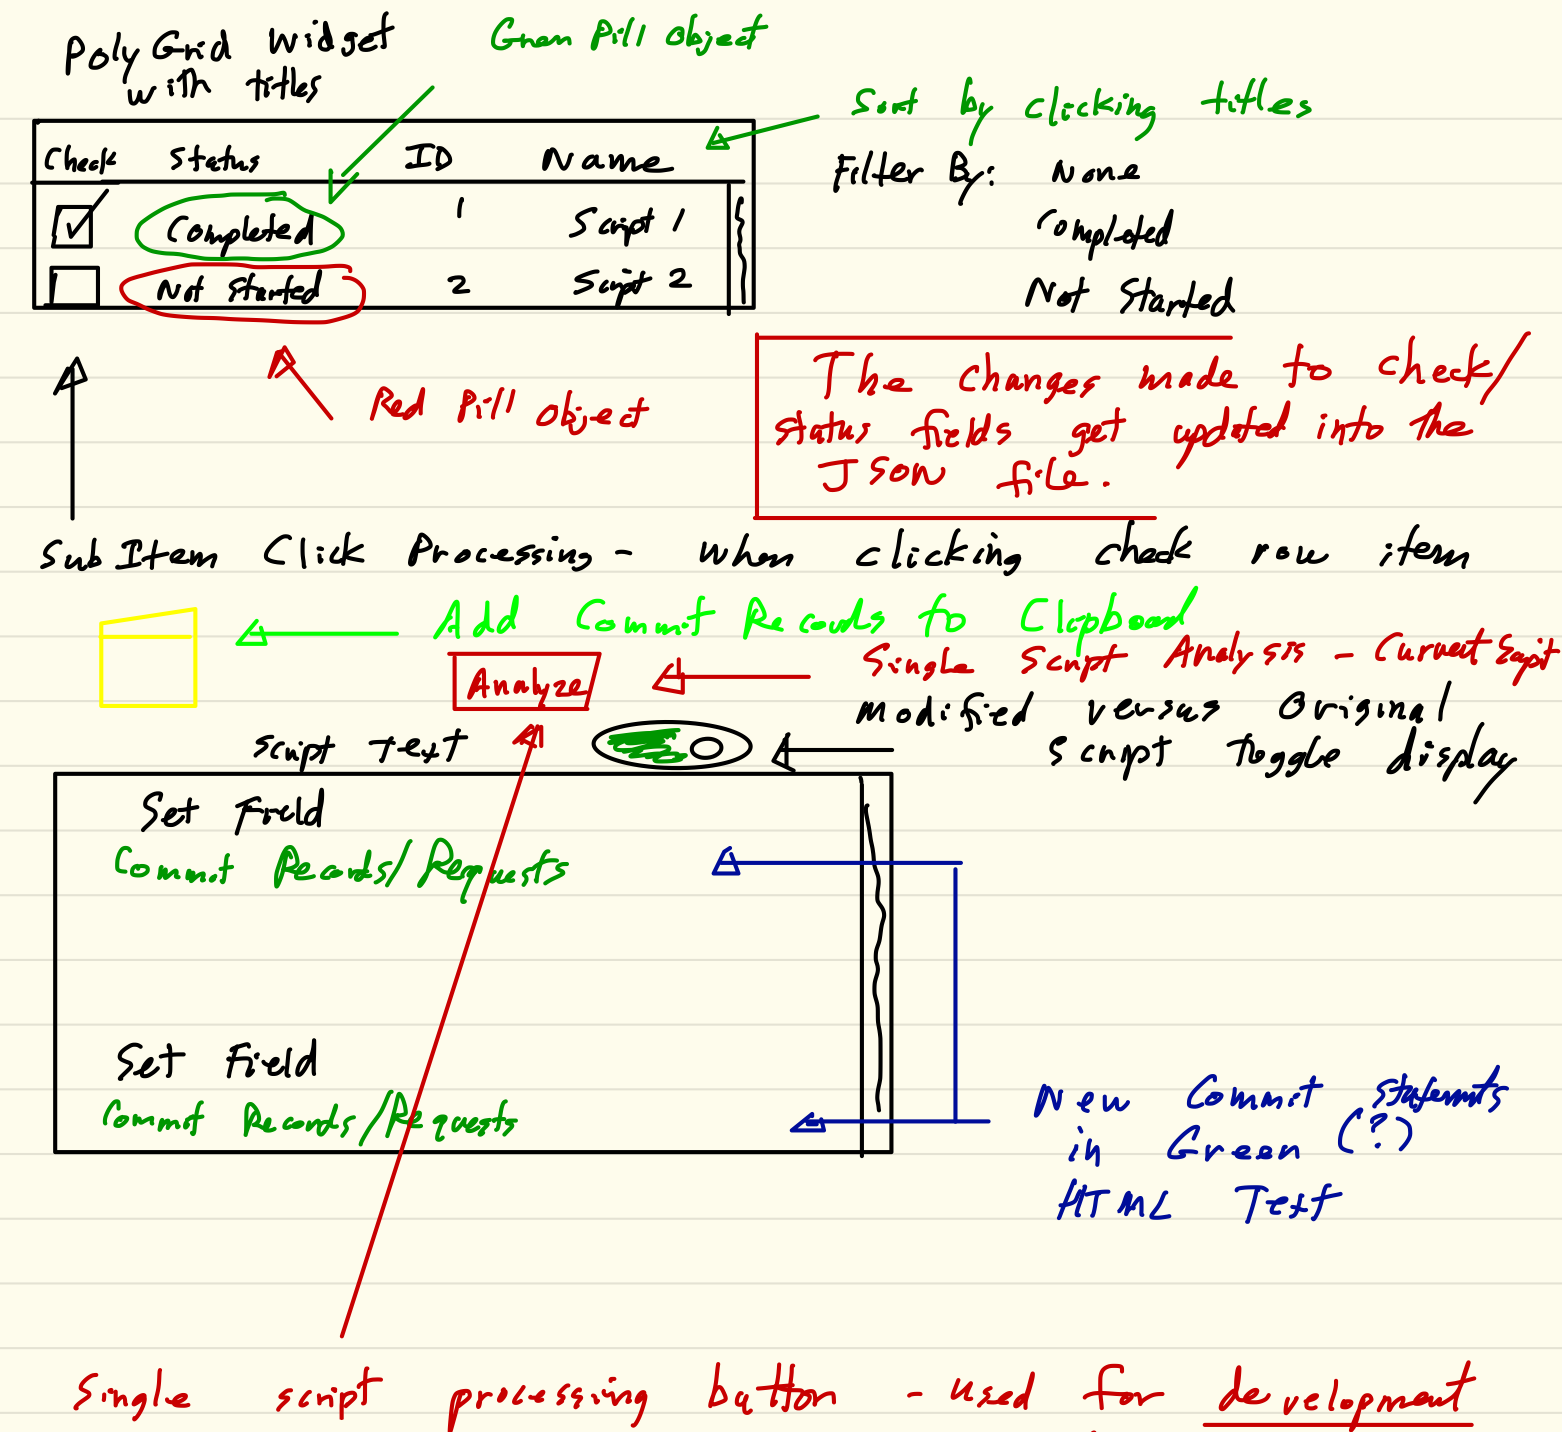 Poly Grid Widget
with titles
Green Pill Object
Sort by clicking titles
Check Status ID Name
Completed 1 Script 1
Not Started 2 Script 2
Filter By: None
Completed
Not Started
Red Pill Object
The changes made to check/
status fields get updated into the
JSON file.
Sub Item Click Processing - when clicking check row item
Add Commit Records to Clipboard
Analyze
Single Script Analysis - Current Script
Modified versus Original
Script Toggle display
script text
Set Field
Commit Records/Requests
Set Field
Commit Records/Requests
New Commit statements
in Green (?)
HTML Text
Single script processing button - used for development